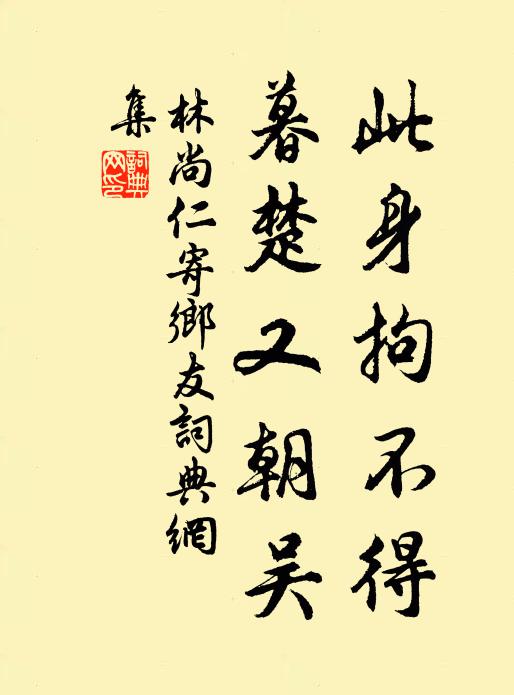 此身拘不得
暮楚又朝吴
林尚仁寄鄉友詞典網
集
詞典
网印